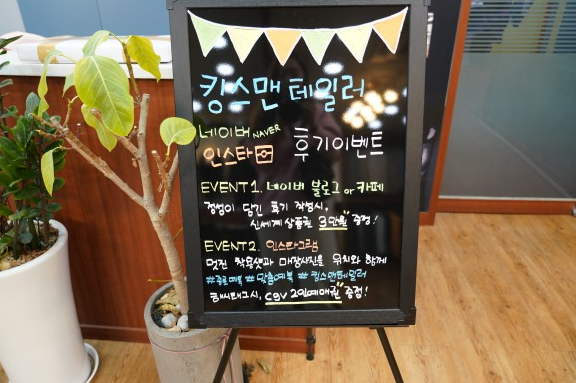 킹스맨 테일러
네이버 NAVER
인스타
후기이벤트
EVENT 1. 네이버 블로그 or 카페
정성이 담긴 후기 작성시,
신세계 상품권 3만원 증정!
EVENT 2. 인스타그램
멋진 착용샷과 매장사진을 위치와 함께
#종로예복 #맞춤예복 #킹스맨테일러
해시태그시, CGV 2인예매권 증정!